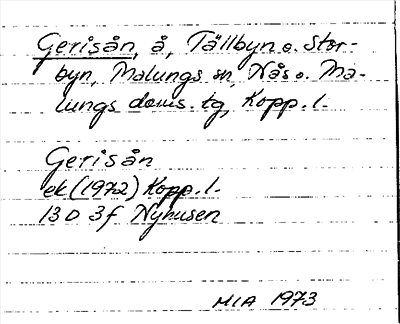 Gerisån, å, Tällbyn o. Stor-
byn, Malungs sn, Nås o. Ma-
lungs doms. tg, Kopp. l.
Gerisån
ek (1972) Kopp. l.
13D 3f Nyhusen
MIA 1973